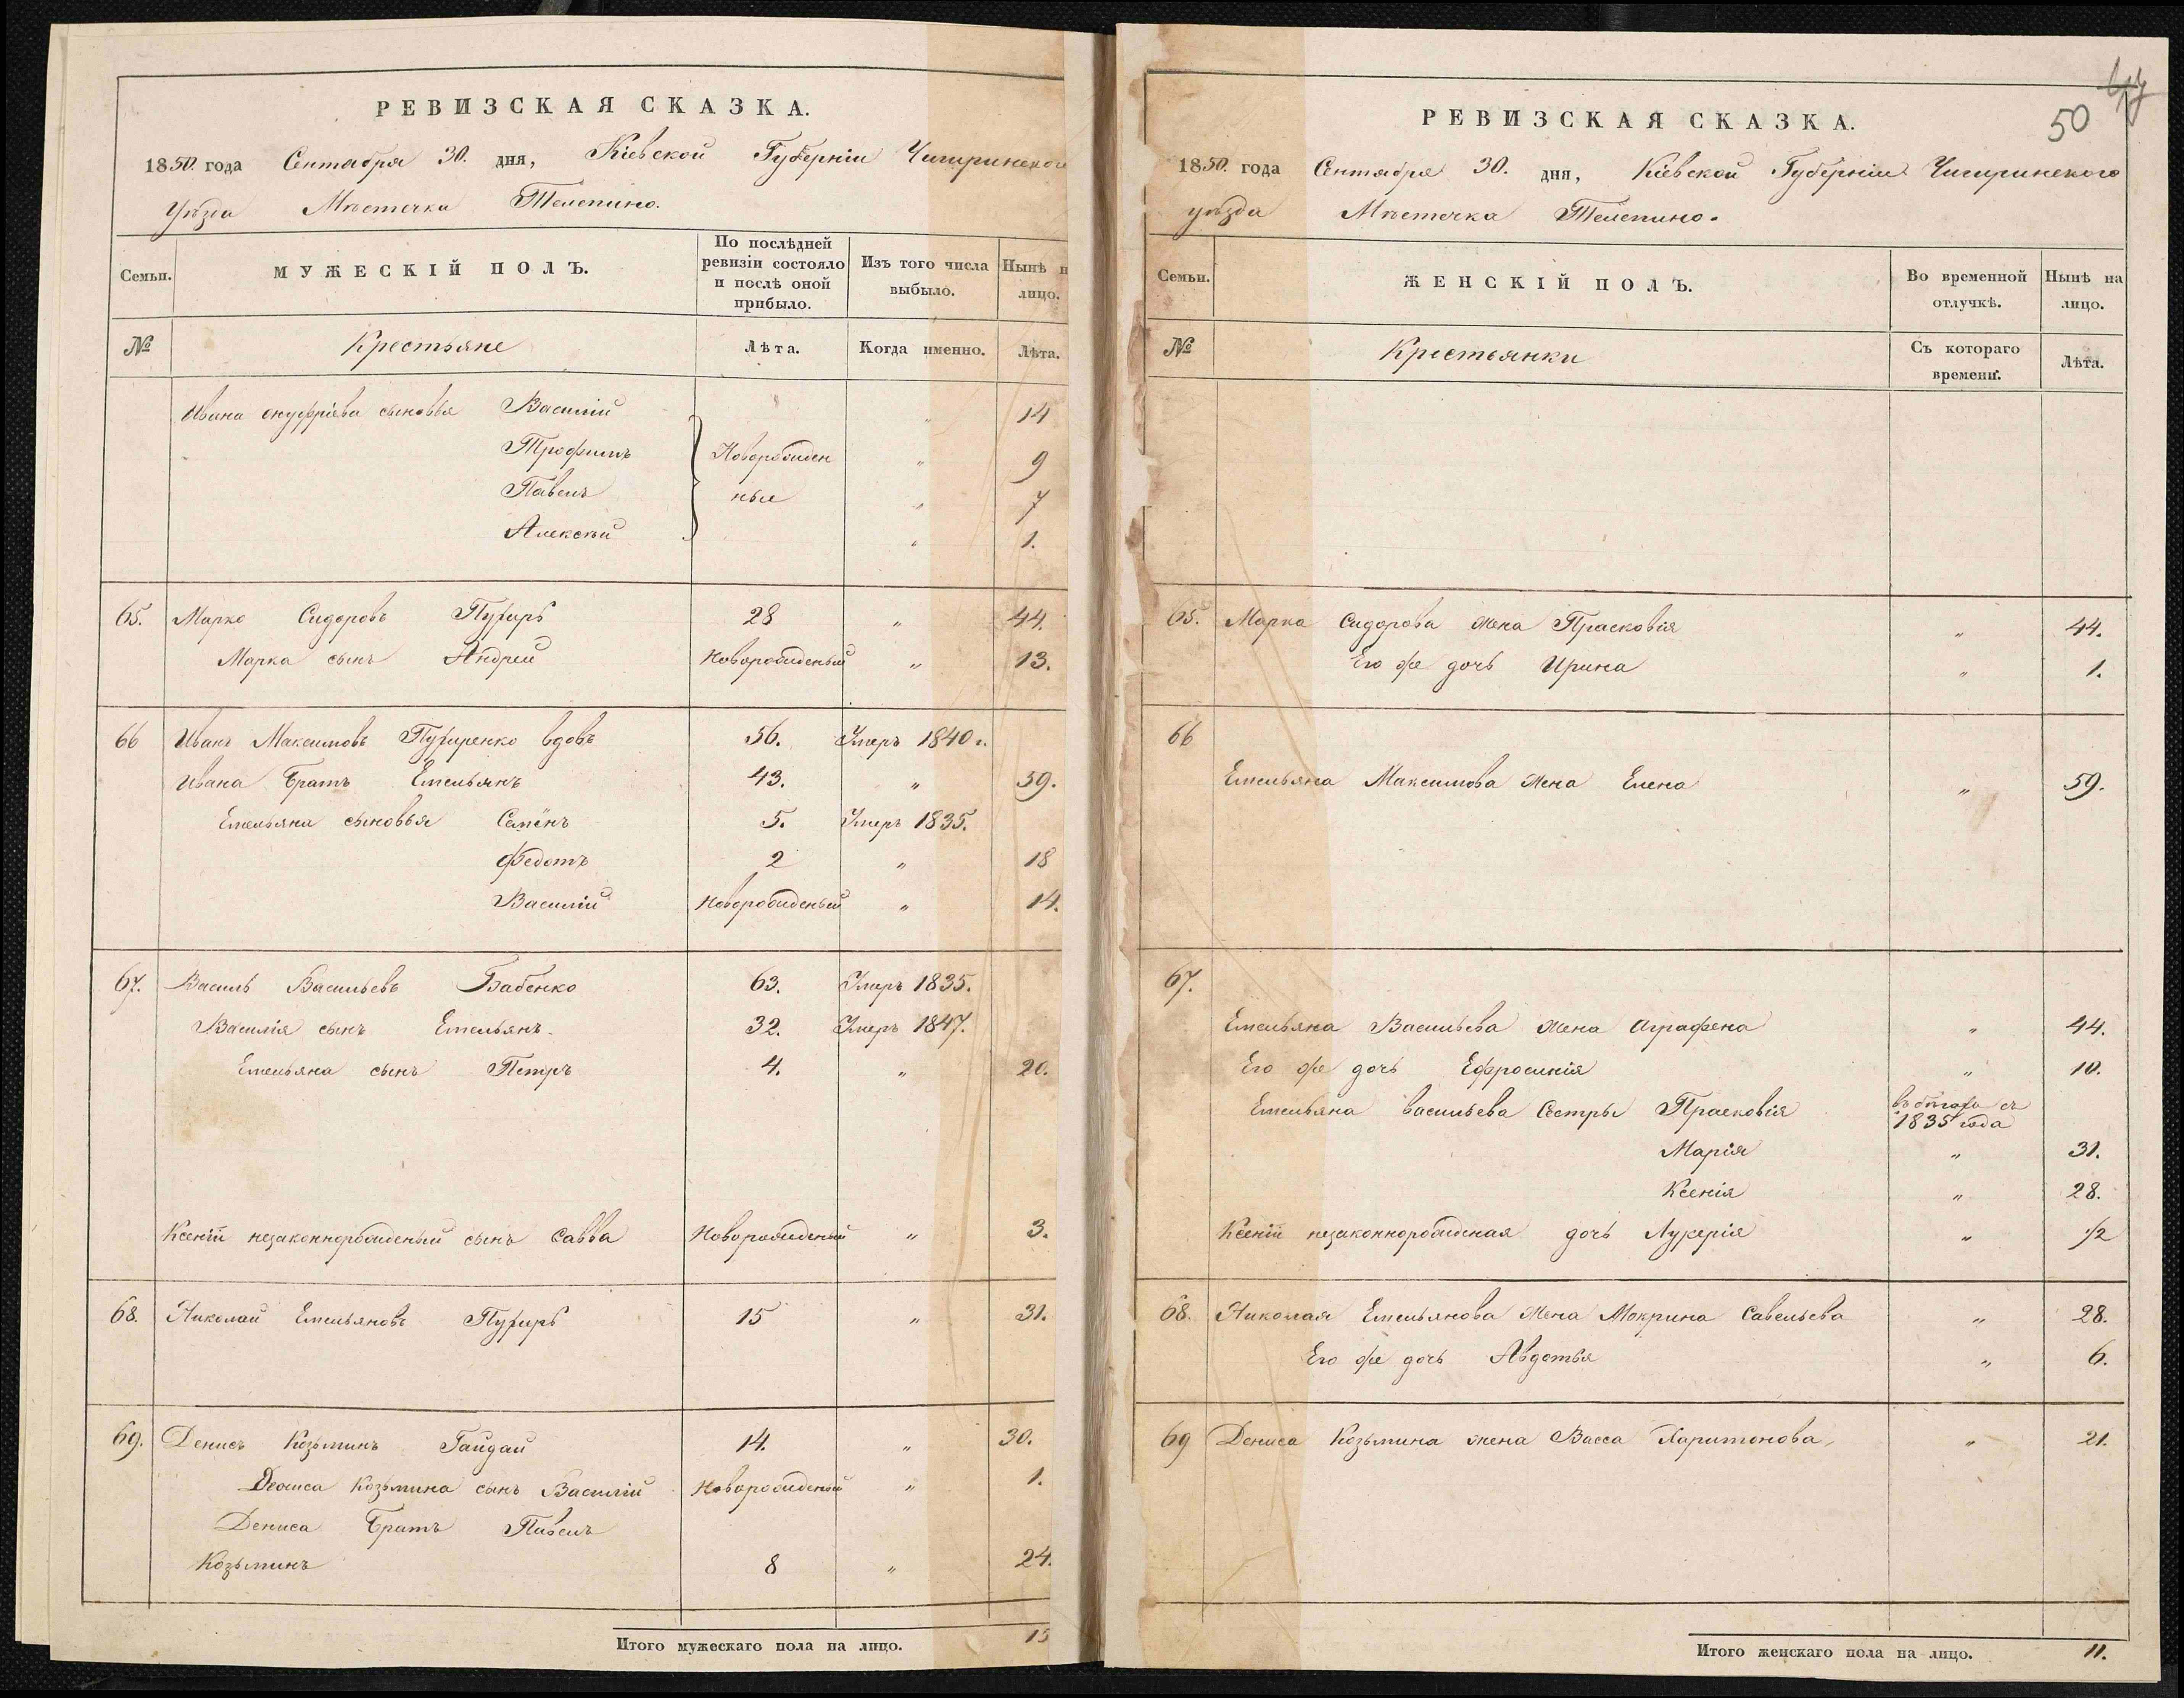 РЕВИЗСКАЯ СКАЗКА.
1850. года Сентября 30. дня, Кіевской Губерніи Чигиринского
Уѣзда Мѣстечка Телепино.
Семьи.
МУЖЕСКІЙ ПОЛЪ.
По послѣдней ревизіи состояло и послѣ оной прибыло.
Изъ того числа выбыло.
Нынѣ н лицо.
№ Крестьяне Лѣта. Когда именно. Лѣта.
Ивана Онуфріева сыновья Василій " 14
Трофимъ Новорожден " 9
Павелъ ные " 7
Алексѣй " 1.
65. Марко Сидоровъ Пухирь 28 " 44.
Марка сынъ Андрей Новорожденый " 13.
66 Иванъ Максимовъ Пухиренко вдовъ 56. Умеръ 1840 г.
Ивана Братъ Емельянъ 43. " 59.
Емельяна сыновья Семёнъ 5. Умеръ 1835.
Федотъ 2 " 18
Василій Новорожденый " 14.
67. Василь Васильевъ Бабенко 63. Умеръ 1835.
Василія сынъ Емельянъ. 32. Умеръ 1847.
Емельяна сынъ Петръ 4. " 20.
Ксеніи незаконнорожденый сынъ Савва Новорожденый " 3.
68. Николай Емельяновъ Пухирь 15 " 31.
69. Денисъ Козьминъ Гайдай 14. " 30.
Дениса Козьмина сынъ Василій Новорожденый " 1.
Дениса Братъ Павелъ
Козьминъ 8 " 24.
Итого мужескаго пола на лицо. 15
50
РЕВИЗСКАЯ СКАЗКА.
1850. года Сентября 30. дня, Кіевской Губерніи Чигиринского
уѣзда Мѣстечка Телепино.
Семьи.
ЖЕНСКІЙ ПОЛЪ.
Во временной отлучкѣ.
Нынѣ на лицо.
№ Крестьянки Съ котораго времени. Лѣта.
65. Марка Сидорова жена Прасковія " 44.
Его же дочь Ирина " 1.
66
Емельяна Максимова жена Елена " 59.
67.
Емельяна Васильева жена Аграфена " 44.
Его же дочь Ефросинія " 10.
Емельяна Васильева Сестры Прасковія въ бѣгахъ съ 1835 года
Марія " 31.
Ксенія " 28.
Ксеніи незаконнорожденая дочь Лукерія " 1/2
68. Николая Емельянова жена Мокрина Савельева " 28.
Его же дочь Авдотья " 6.
69 Дениса Козьмина жена Васса Харитонова, " 21.
Итого женскаго пола на лицо. 11.